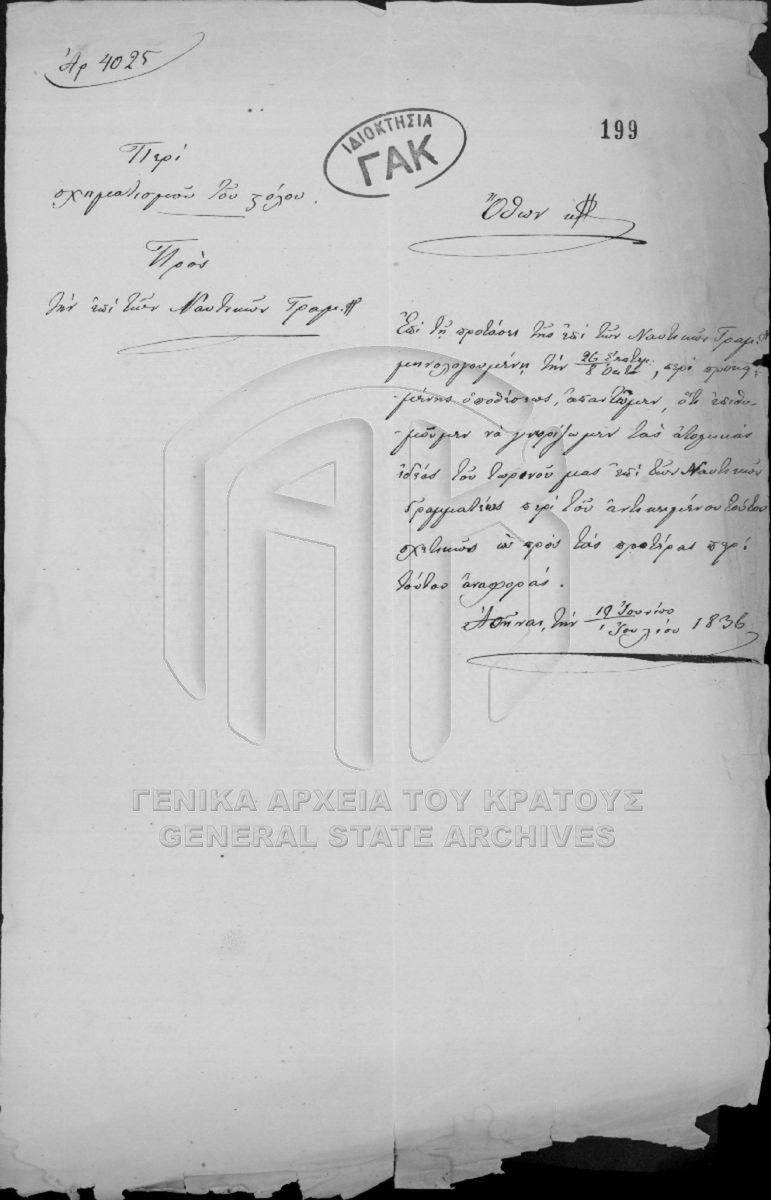 Ἀρ 4025
ΙΔΙΟΚΤΗΣΙΑ
ΓΑΚ
199
Περὶ
σχηματισμοῦ τοῦ στόλου.
Πρὸς
τὴν ἐπὶ τῶν Ναυτικῶν Γραμ.
Ὄθων
Ἐπὶ τῇ προτάσει τῆς ἐπὶ τῶν Ναυτικῶν Γραμ.
μηνολογουμένῃ τὴν 26 Σεπτεμ. / 8 Ὀκτ, περὶ προκει-
-μένης ὑποθέσεως, ἀπαντῶμεν, ὅτι ἐπιθυ-
-μοῦμεν νὰ γνωρίζωμεν τὰς ἀτομικὰς
ἰδέας τοῦ τωρινοῦ μας ἐπὶ τῶν Ναυτικῶν
Γραμματέως περὶ τοῦ ἀντικειμένου τούτου
σχετικῶς ὡς πρὸς τὰς προτέρας περὶ
τούτου ἀναφοράς.
Ἀθῆναι, τὴν 19 Ἰουνίου / 1 Ἰουλίου 1836
ΓΕΝΙΚΑ ΑΡΧΕΙΑ ΤΟΥ ΚΡΑΤΟΥΣ
GENERAL STATE ARCHIVES